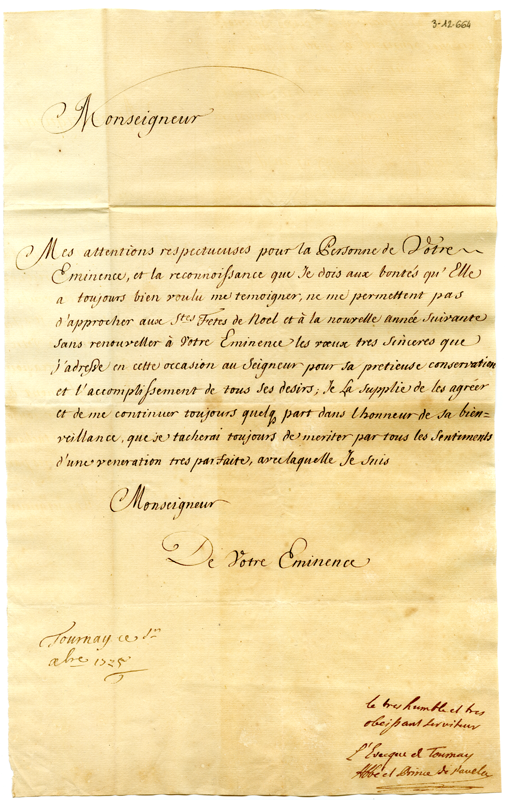 3-12-664
Monseigneur
Mes attentions respectueuses pour la Personne de Votre
Eminence, et la reconnoissance que Je dois aux bontés qu'Elle
a toujours bien voulu me temoigner, ne me permettent pas
d'approcher aux Stes Fêtes de Noel et à la nouvelle année suivante
sans renouveller à Votre Eminence les vœux tres sinceres que
j'adresse en cette occasion au Seigneur pour sa pretieuse conservation
et l'accomplissement de tous ses desirs; Je La supplie de les agréer
et de me continuer toujours quelq part dans l'honneur de sa bien=
veillance, que je tacherai toujours de meriter par tous les sentiments
d'une veneration tres parfaite, avec laquelle Je suis
Monseigneur
De Votre Eminence
Tournay ce
le tres humble et tres
obeissant serviteur
L'Evecque de Tournay
Abbé et Prince de